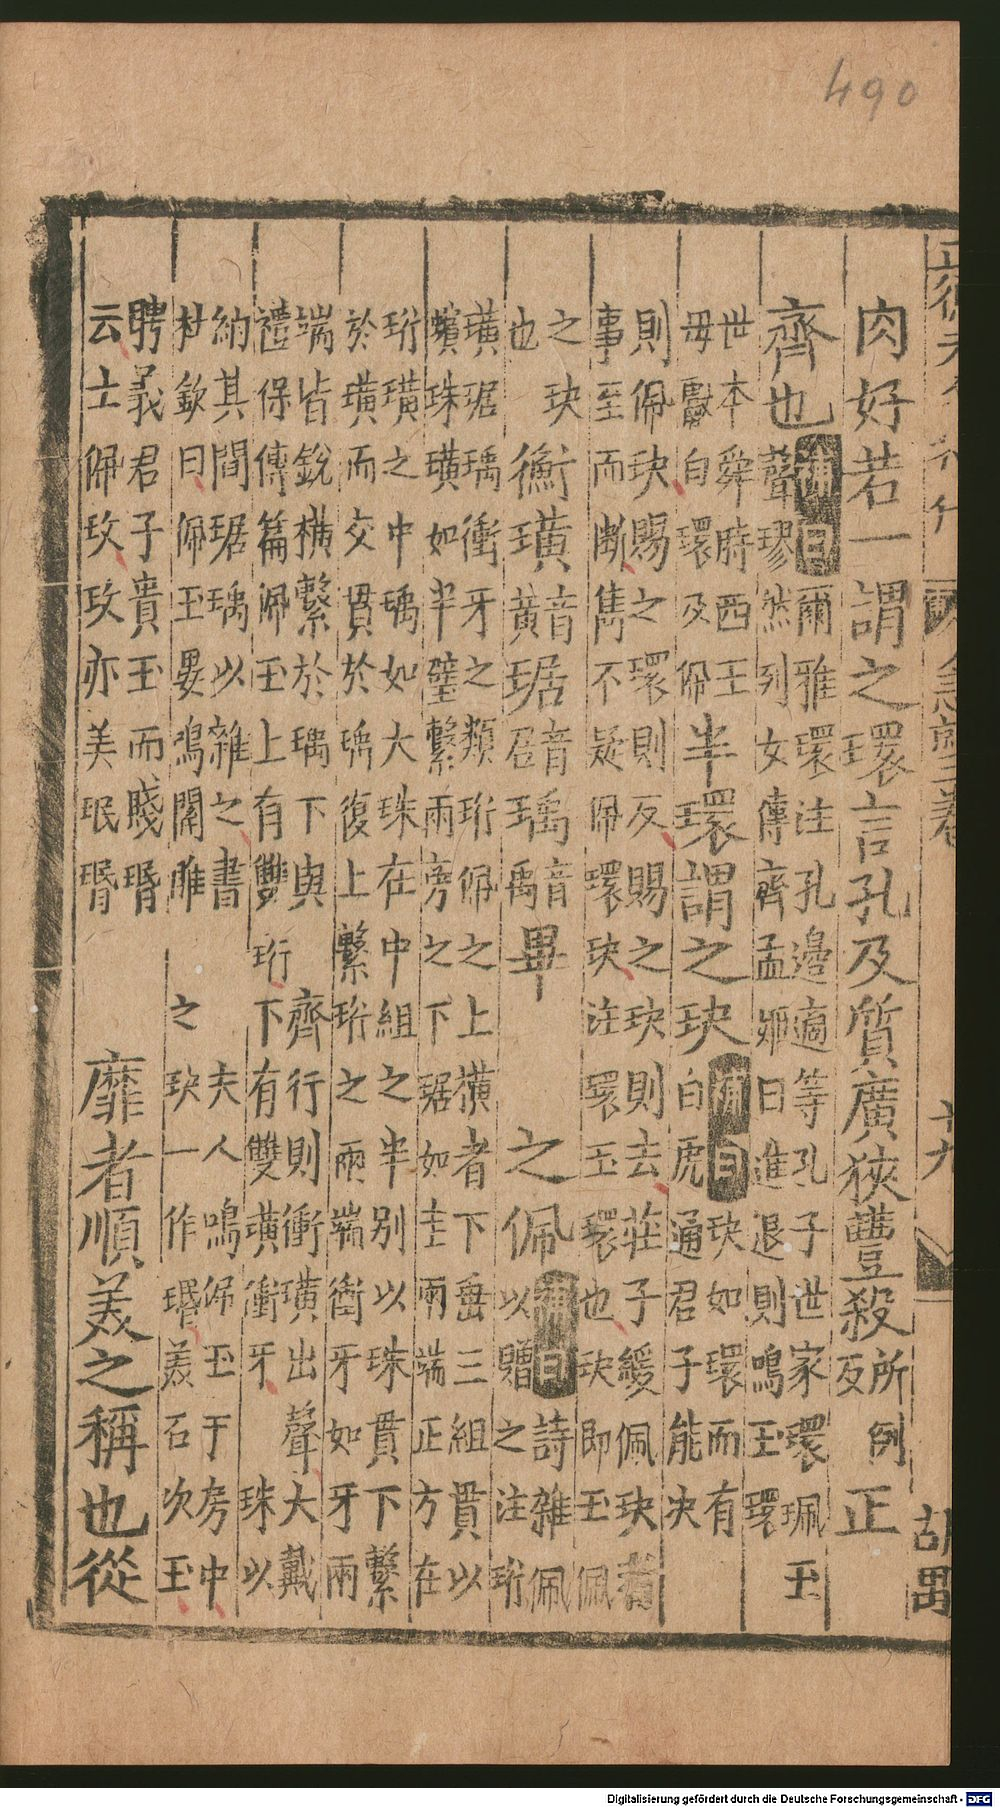 490
正德
急就三卷
十九
胡禺
肉好若一謂之環言孔及質廣狹豐殺所例反正
齊也補曰爾雅環注孔邊適等孔子世家環珮玉
聲璆然列女傳齊孟姬曰進退則鳴玉環
世本舜時西王
毋獻白環及佩半環謂之玦補曰玦如環而有
白虎通君子能决
則佩玦賜之環則反賜之玦則去莊子緩佩玦者
事至而斷雋不疑佩環玦注環玉環也玦即玉佩
之玦
也衡璜音黃琚音居瑀音禹畢之佩補曰詩雜佩
以贈之注珩
璜琚瑀衝牙之類珩佩之上橫者下垂三組貫以
蠙珠璜如半璧繫兩旁之下琚如圭兩端正方在
珩璜之中瑀如大珠在中組之半別以珠貫下繫
於璜而交貫於瑀復上繫珩之兩端衝牙如牙兩
端皆銳橫繫於瑀下與齊行則衝璜出聲大戴
禮保傅篇佩玉上有雙珩下有雙璜衝牙珠以
納其間琚瑀以雜之書夫人鳴佩玉于房中
杜欽曰佩玉晏鳴關雎之玦一作瑉美石次玉
聘義君子貴玉而賤瑉
云士佩玫玫亦美珉瑉靡者順美之稱也從
Digitalisierung gefördert durch die Deutsche Forschungsgemeinschaft - DFG